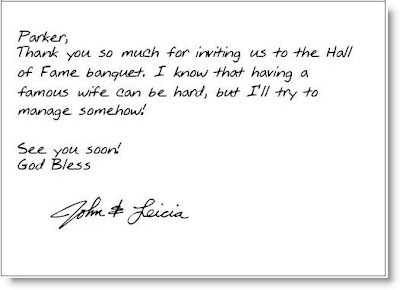 Parker,
Thank you so much for inviting us to the Hall
of Fame banquet. I know that having a
famous wife can be hard, but I'll try to
manage somehow!
See you soon!
God Bless
John & Leicia